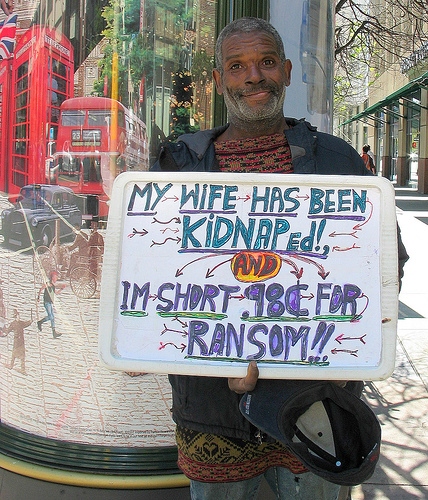 MY WIFE HAS BEEN
KiDNAPed!,
AND
IM SHORT .98¢ FOR
RANSOM!!